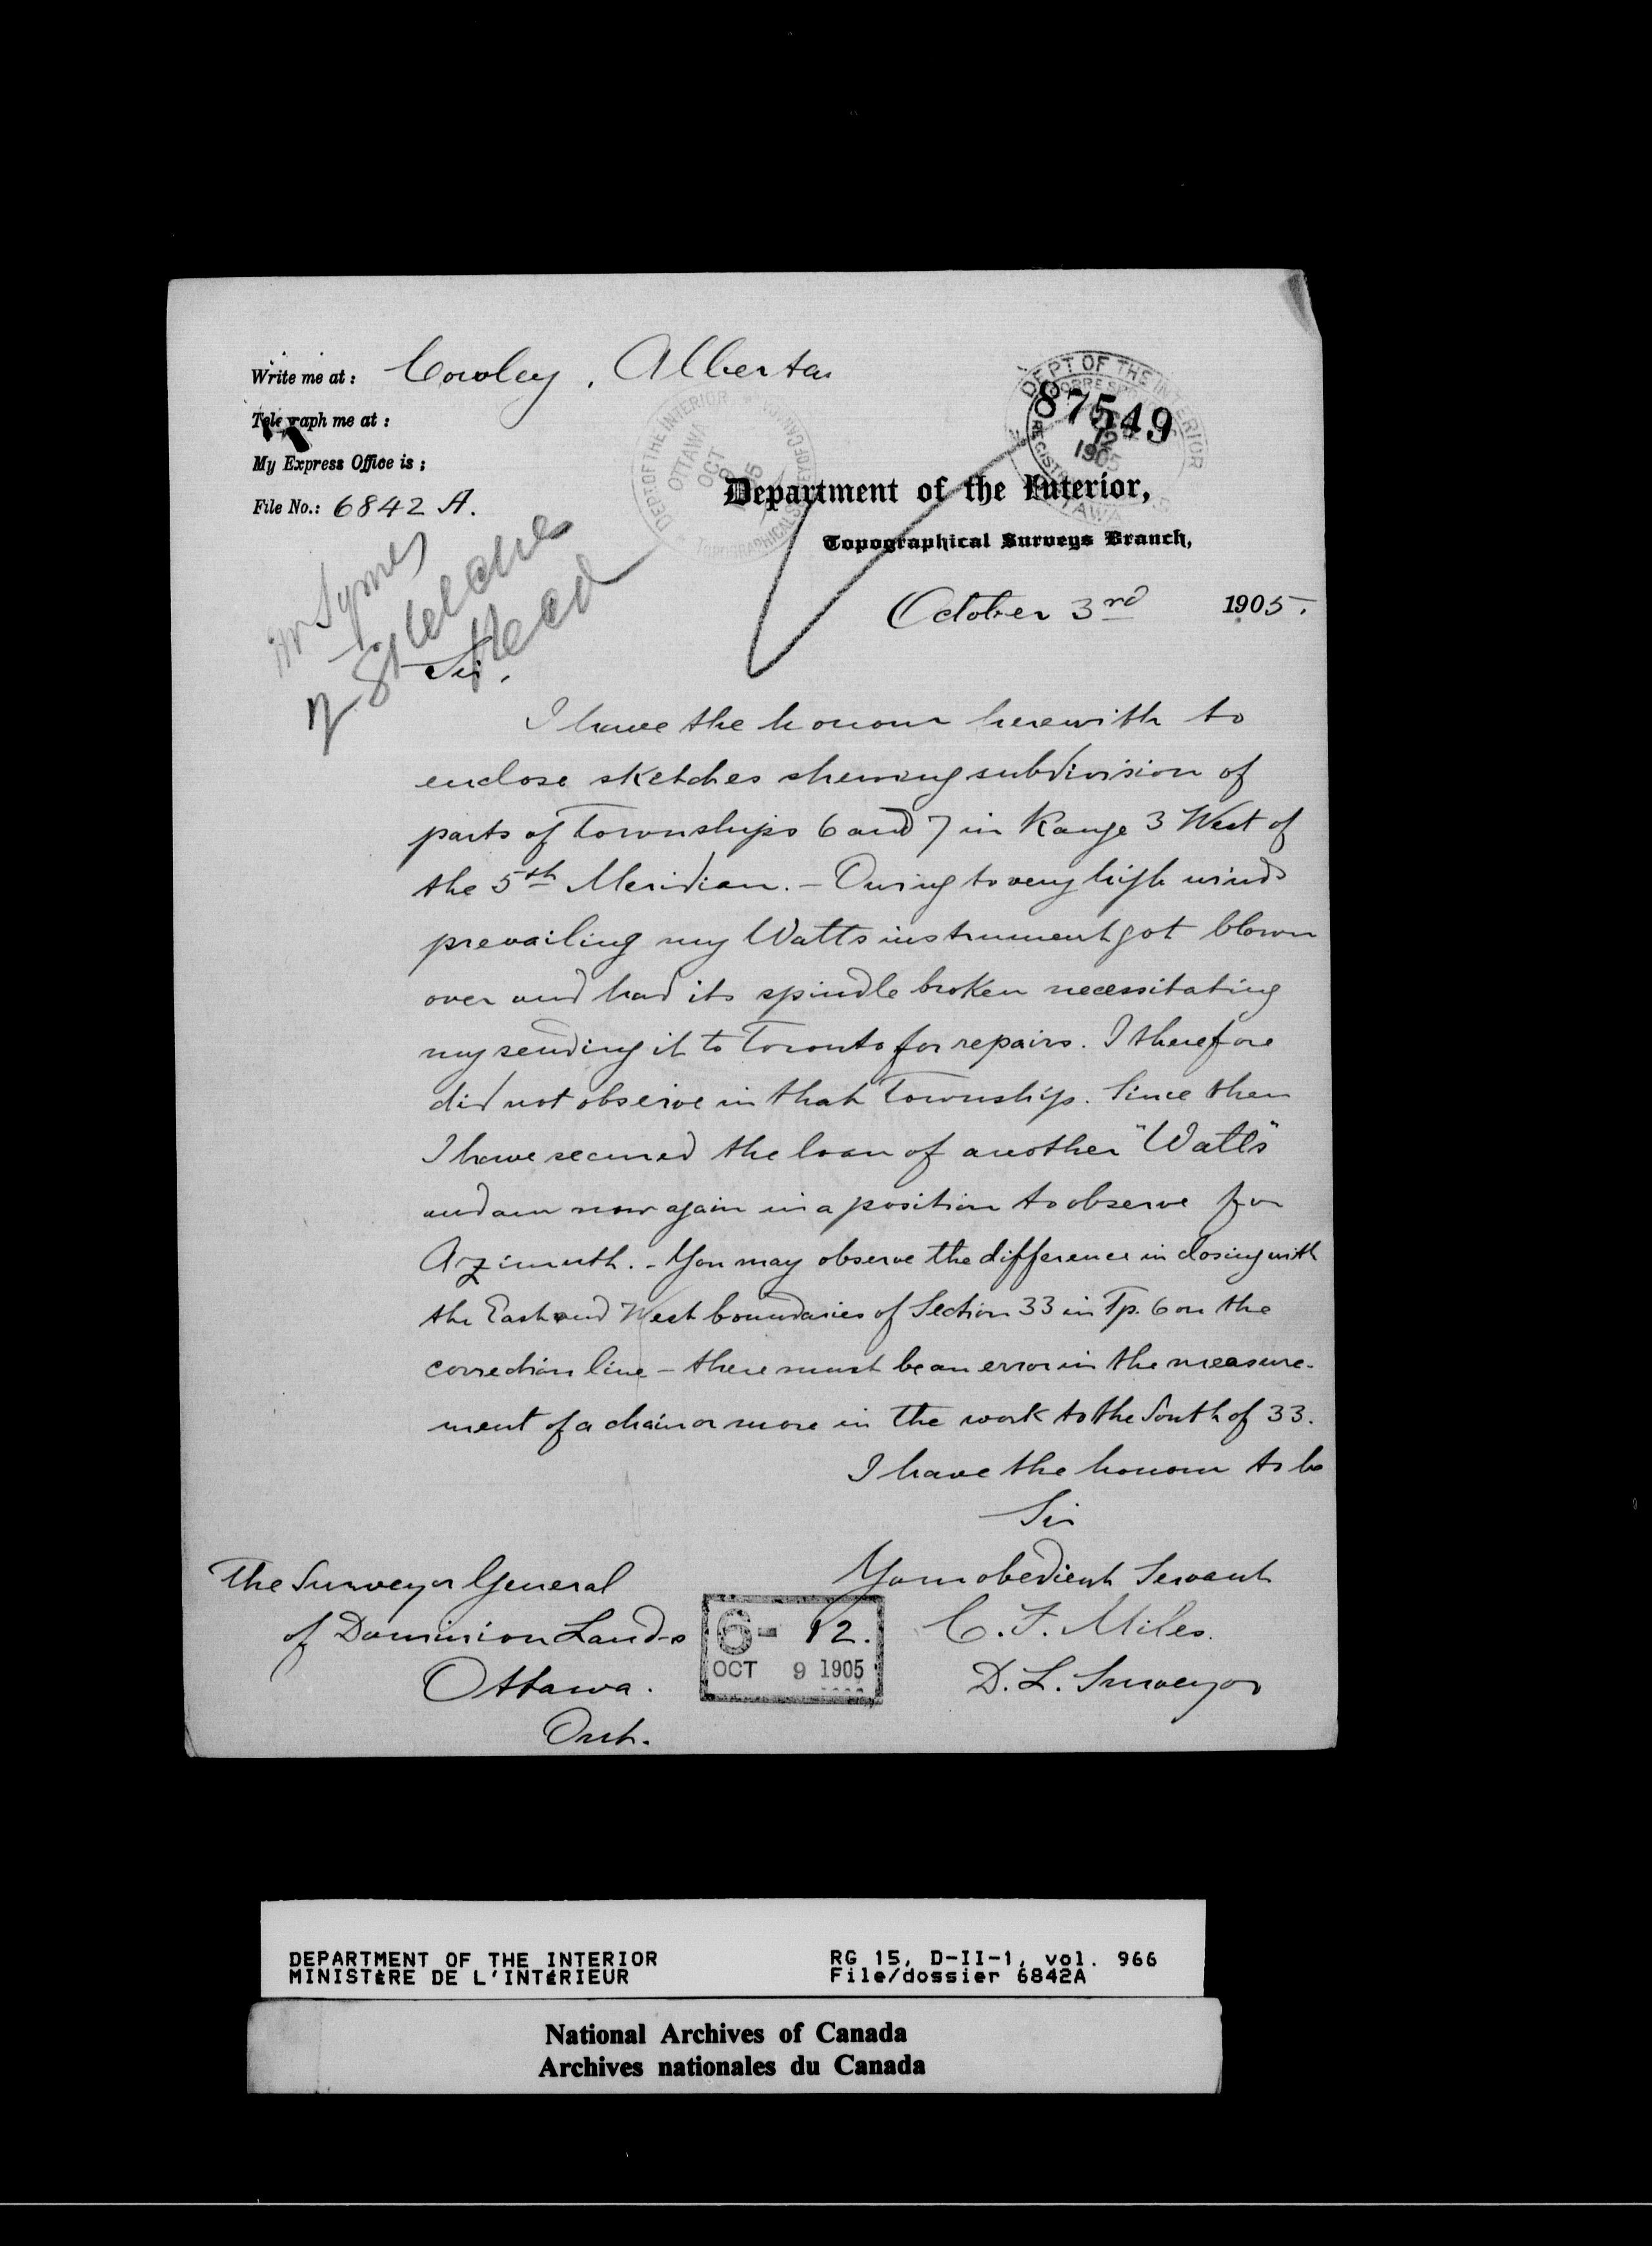 Write me at: Cowley, Alberta
Telegraph me at:
My Express Office is:
File No.: 6842 A.
DEPT. OF THE INTERIOR
OTTAWA
OCT
9
TOPOGRAPHICAL SURVEY OF CANADA
DEPT OF THE INTERIOR
87549
12
1905
OTTAWA
Department of the Interior,
Topographical Surveys Branch,
October 3rd 1905.
Mr Symes
2 Sketches
Head
Sir,
I have the honour herewith to
enclose sketches shewing subdivision of
parts of Townships 6 and 7 in Range 3 West of
the 5th Meridian. - Owing to very high winds
prevailing my Watts instrument got blown
over and had its spindle broken necessitating
my sending it to Toronto for repairs. I therefore
did not observe in that Township. Since then
I have secured the loan of another "Watts"
and am now again in a position to observe for
Azimuth. - You may observe the difference in closing with
the East and West boundaries of Section 33 in Tp. 6 on the
correction line - there must be an error in the measure-
ment of a chain or more in the work to the South of 33.
I have the honour to be
Sir
Your obedient Servant
C. F. Miles.
D. L. Surveyor
The Surveyor General
of Dominion Lands
Ottawa.
Ont.
6- 12.
OCT 9 1905
DEPARTMENT OF THE INTERIOR
MINISTÈRE DE L'INTÉRIEUR
RG 15, D-II-1, vol. 966
File/dossier 6842A
National Archives of Canada
Archives nationales du Canada